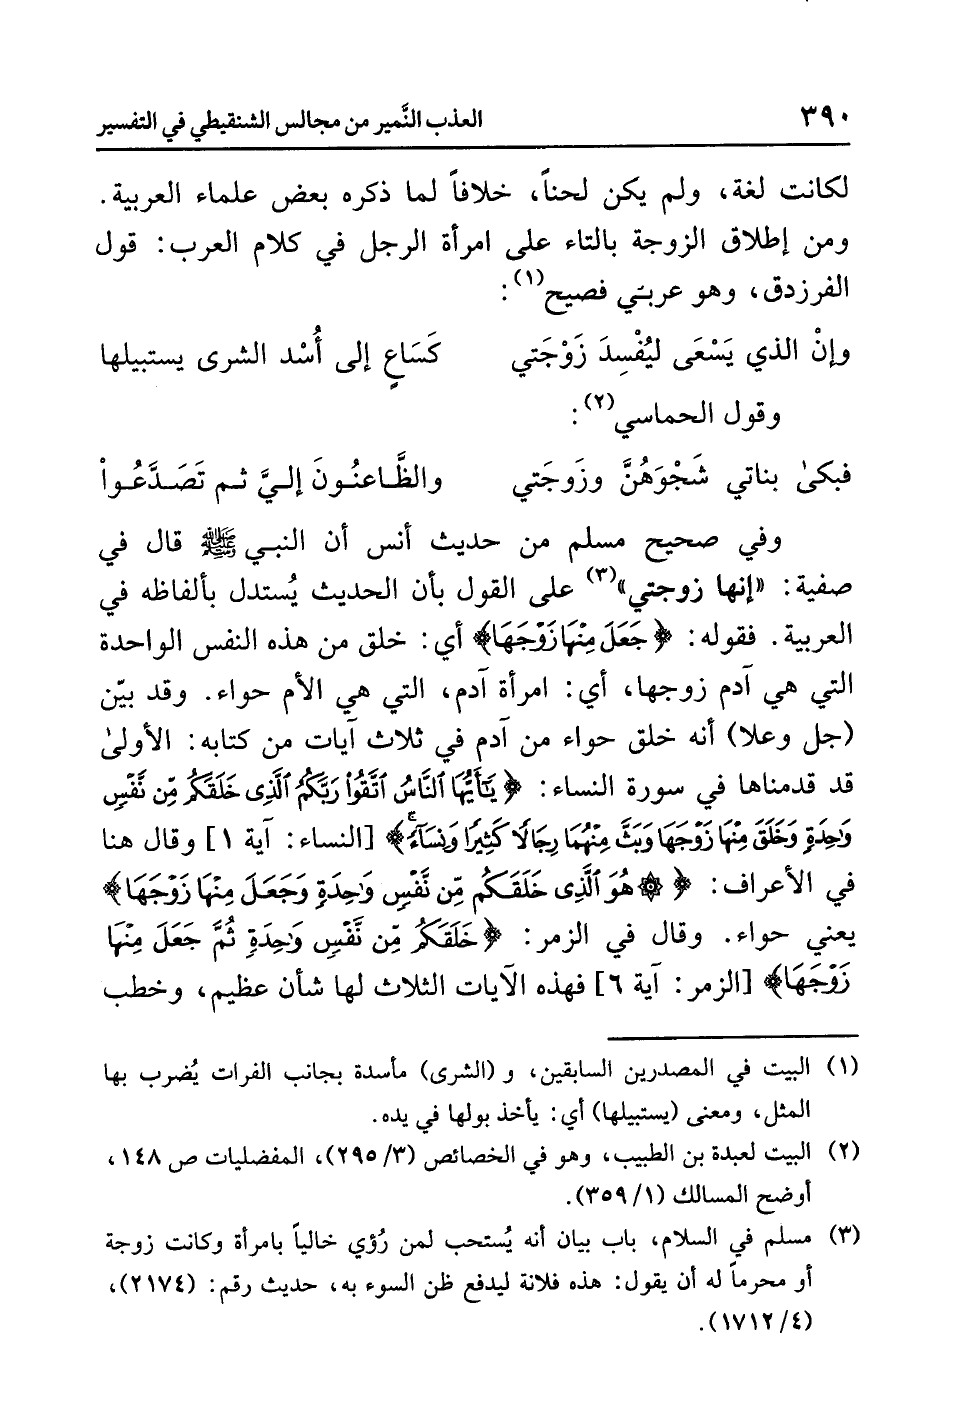 ٣٩٠ العذب النَّمير من مجالس الشنقيطي في التفسير
لكانت لغة، ولم يكن لحناً، خلافاً لما ذكره بعض علماء العربية.
ومن إطلاق الزوجة بالتاء على امرأة الرجل في كلام العرب: قول
الفرزدق، وهو عربي فصيح(١):
وإنْ الذي يَسْعَى ليُفْسِدَ زَوْجَتي كَسَاعٍ إلى أُسْد الشرى يستبيلها
وقول الحماسي(٢):
فبكىٰ بناتي شَجْوَهُنَّ وزَوجَتي والظَّاعنُونَ إليَّ ثم تَصَدَّعُواْ
وفي صحيح مسلم من حديث أنس أن النبي ﷺ قال في
صفية: «إنها زوجتي»(٣) على القول بأن الحديث يُستدل بألفاظه في
العربية. فقوله: ﴿جَعَلَ مِنْهَا زَوْجَهَا﴾ أي: خلق من هذه النفس الواحدة
التي هي آدم زوجها، أي: امرأة آدم، التي هي الأم حواء. وقد بيّن
(جل وعلا) أنه خلق حواء من آدم في ثلاث آيات من كتابه: الأولىٰ
قد قدمناها في سورة النساء: ﴿يَٰٓأَيُّهَا ٱلنَّاسُ ٱتَّقُوا۟ رَبَّكُمُ ٱلَّذِى خَلَقَكُم مِّن نَّفْسٍ
وَٰحِدَةٍ وَخَلَقَ مِنْهَا زَوْجَهَا وَبَثَّ مِنْهُمَا رِجَالًا كَثِيرًا وَنِسَآءً﴾ [النساء: آية ١] وقال هنا
في الأعراف: ﴿۞ هُوَ ٱلَّذِى خَلَقَكُم مِّن نَّفْسٍ وَٰحِدَةٍ وَجَعَلَ مِنْهَا زَوْجَهَا﴾
يعني حواء. وقال في الزمر: ﴿خَلَقَكُم مِّن نَّفْسٍ وَٰحِدَةٍ ثُمَّ جَعَلَ مِنْهَا
زَوْجَهَا﴾ [الزمر: آية ٦] فهذه الآيات الثلاث لها شأن عظيم، وخطب
(١) البيت في المصدرين السابقين، و (الشرى) مأسدة بجانب الفرات يُضرب بها
المثل، ومعنى (يستبيلها) أي: يأخذ بولها في يده.
(٢) البيت لعبدة بن الطبيب، وهو في الخصائص (٣/ ٢٩٥)، المفضليات ص ١٤٨،
أوضح المسالك (١/ ٣٥٩).
(٣) مسلم في السلام، باب بيان أنه يُستحب لمن رُؤي خالياً بامرأة وكانت زوجة
أو محرماً له أن يقول: هذه فلانة ليدفع ظن السوء به، حديث رقم: (٢١٧٤)،
(٤/ ١٧١٢).